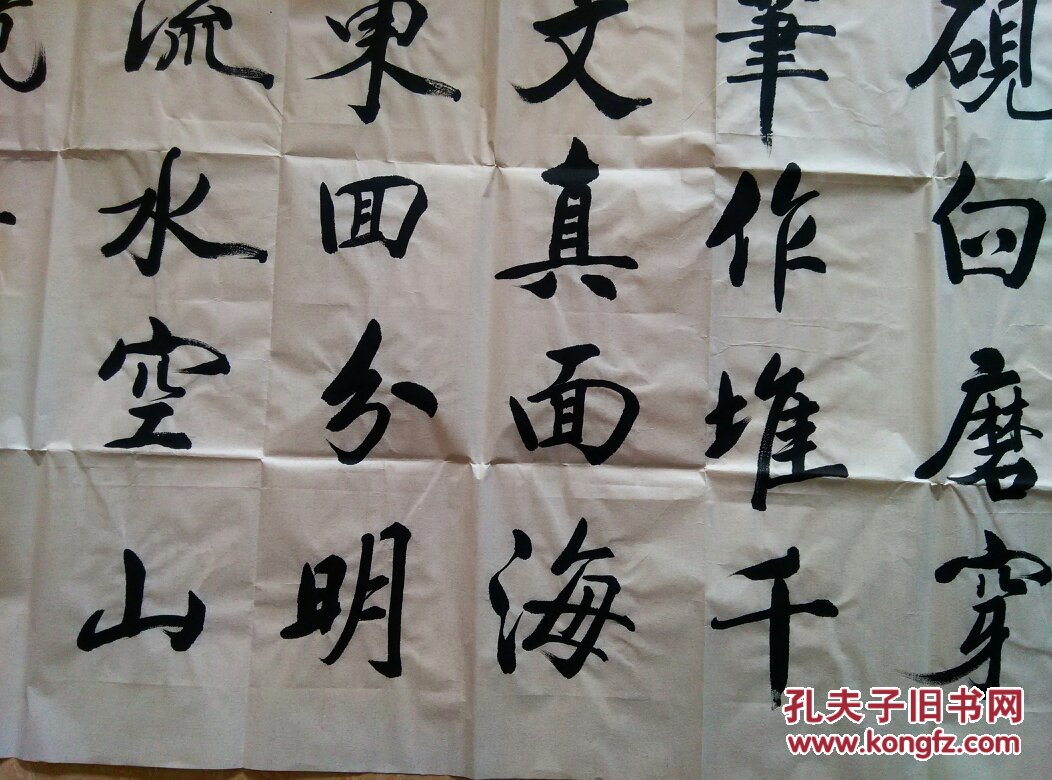 硯臼磨穿
筆作堆千
文真面海
東回分明
流水空山
孔夫子旧书网
www.kongfz.com